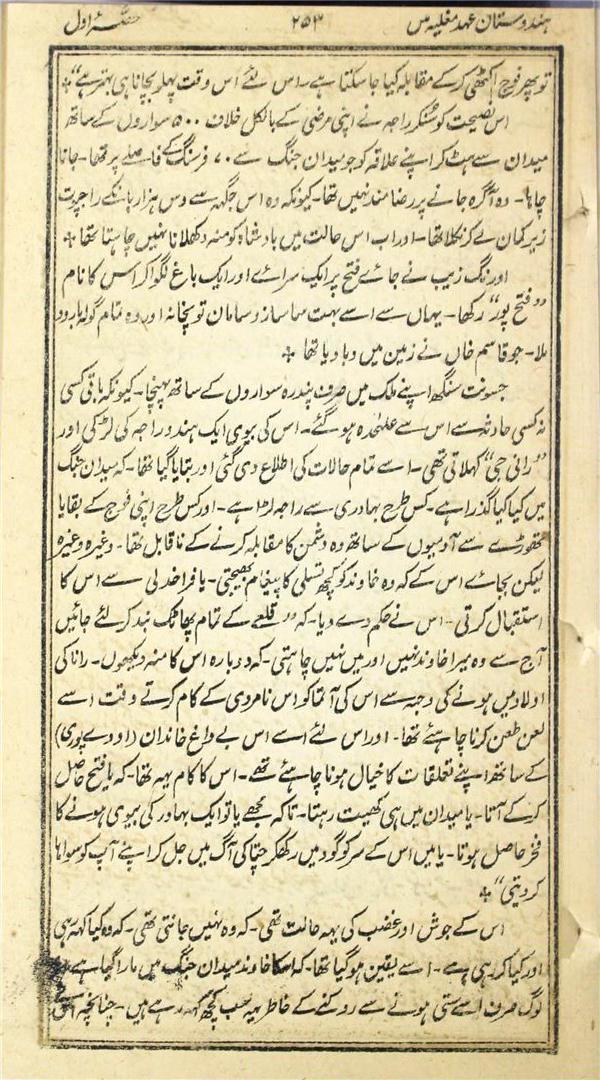 ہندوستان عہد مغلیہ میں ۲۵۳ حصہ اول
تو پھر فوج اکٹھی کر کے مقابلہ کیا جا سکتا ہے۔ اس لئے اس وقت پہلو بچانا ہی بہتر ہے"؞
اس نصیحت کو سنکر راجہ نے اپنی مرضی کے بالکل خلاف ۵۰۰ سواروں کے ساتھ
میدان سے ہٹ کر اپنے علاقہ کو جو میدان جنگ سے ۷۰ فرسنگ کے فاصلے پر تھا۔ جانا
چاہا۔ وہ آگرہ جانے پر رضامند نہیں تھا۔ کیونکہ وہ اس جگہ سے دس ہزار بانکے راجپوت
زیر کمان لے کر نکلا تھا۔ اور اب اس حالت میں بادشاہ کو منہ دکھلانا نہیں چاہتا تھا ؞
اورنگ زیب نے جائے فتح پر ایک سرائے اور ایک باغ لگوا کر اس کا نام
"فتح پور" رکھا۔ یہاں سے اسے بہت سا ساز و سامان توپخانہ اور وہ تمام گولہ بارود
ملا۔ جو قاسم خاں نے زمین میں دبا دیا تھا ؞
جسونت سنگھ اپنے ملک میں صرف پندرہ سواروں کے ساتھ پہنچا۔ کیونکہ باقی کسی
نہ کسی حادثہ سے اس سے علیٰحدہ ہو گئے۔ اس کی بیوی ایک ہندو راجہ کی لڑکی اور
"رانی جی" کہلاتی تھی۔ اسے تمام حالات کی اطلاع دی گئی اور بتایا گیا تھا۔ کہ میدان جنگ
میں کیا کیا گذرا ہے۔ کس طرح بہادری سے راجہ لڑا ہے۔ اور کس طرح اپنی فوج کے بقایا
تھوڑے سے آدمیوں کے ساتھ وہ دشمن کا مقابلہ کرنے کے ناقابل تھا۔ وغیرہ وغیرہ
لیکن بجائے اس کے کہ وہ خاوند کو کچھ تسلی کا پیغام بھیجتی۔ یا فراخدلی سے اس کا
استقبال کرتی۔ اس نے حکم دے دیا۔ کہ "قلعے کے تمام پھاٹک بند کر لئے جائیں
آج سے وہ میرا خاوند نہیں اور میں نہیں چاہتی۔ کہ دوبارہ اس کا منہ دیکھوں۔ رانا کی
اولاد میں ہونے کی وجہ سے اس کی آتما کو اس نامردی کے کام کرتے وقت اسے
لعن طعن کرنا چاہئے تھا۔ اور اس لئے اسے اس بے داغ خاندان (اودے پوری)
کے ساتھ اپنے تعلقات کا خیال ہونا چاہئے تھے۔ اس کا کام یہ تھا۔ کہ یا فتح حاصل
کر کے آتا۔ یا میدان میں ہی کھیت رہتا۔ تاکہ مجھے یا تو ایک بہادر کی بیوی ہونے کا
فخر حاصل ہوتا۔ یا میں اس کے سر کو گود میں رکھکر چتا کی آگ میں جل کر اپنے آپ کو سواہا
کر دیتی"؞
اس کے جوش اور غضب کی یہہ حالت تھی۔ کہ وہ نہیں جانتی تھی۔ کہ وہ کیا کہہ رہی
اور کیا کر رہی ہے۔ اسے یقین ہو گیا تھا۔ کہ اسکا خاوند میدان جنگ میں مارا گیا ہے
لوگ صرف اسے ستی ہونے سے روکنے کے خاطر یہ سب کچھ کہہ رہے ہیں۔ چنانچہ